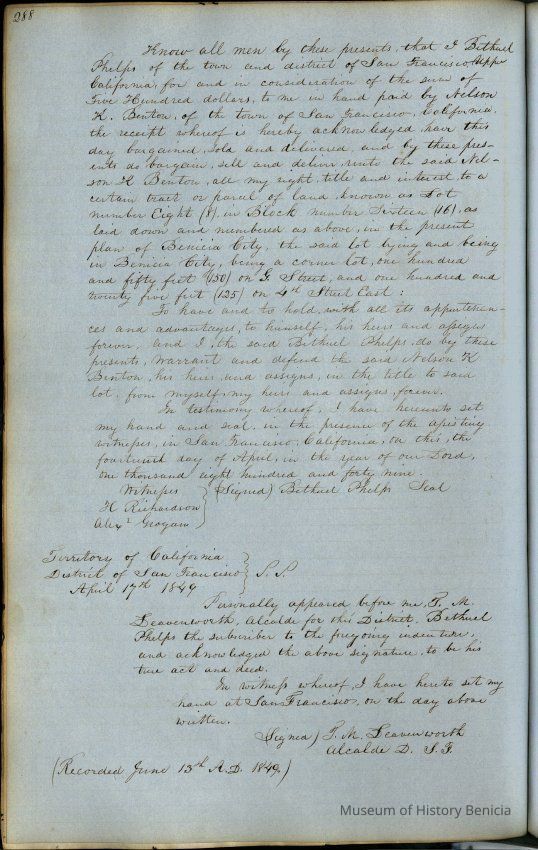 288
Know all men by these presents, that I Bethuel
Phelps of the town and district of San Francisco Upper
California, for and in consideration of the sum of
Five Hundred dollars, to me in hand paid by Nelson
K. Benton, of the town of San Francisco, California,
the receipt whereof is hereby acknowledged, have this
day bargained, sold and delivered, and by these pres-
ents do bargain, sell and deliver, unto the said Nel-
son K Benton, all my right, title and interest, to a
certain tract or parcel of land, known as Lot
number Eight (8), in Block number Sixteen (16), as
laid down and numbered as above, in the present
plan of Benicia City, the said lot lying and being
in Benicia City, being a corner lot, one hundred
and fifty feet (150) on G. Street, and one hundred and
twenty five feet (125) on 4th Street East:
To have and to hold, with all its appurtenan-
ces and advantages, to himself, his heirs and assigns
forever, and I, the said Bethuel Phelps, do by these
presents, warrant and defend the said Nelson K
Benton, his heirs and assigns, in the title to said
lot, from myself, my heirs and assigns, forever.
In testimony whereof, I have hereunto set
my hand and seal, in the presence of the
witnesses, in San Francisco, California, on this, the
fourteenth day of April, in the year of our Lord,
one thousand eight hundred and forty nine.
Witnesses (Signed) Bethuel Phelps Seal
H Richardson
Alexr Grogan
Territory of California
District of San Francisco S.S.
April 17th 1849
Personally appeared before me, T. M.
Leavenworth, Alcalde for this District, Bethuel
Phelps the subscriber to the foregoing indenture,
and acknowledged the above signature, to be his
true act and deed.
In witness whereof, I have hereto set my
hand at San Francisco, on the day above
written.
(Signed) T. M. Leavenworth
Alcalde D. S. F.
(Recorded June 13th A.D. 1849.)
Museum of History Benicia